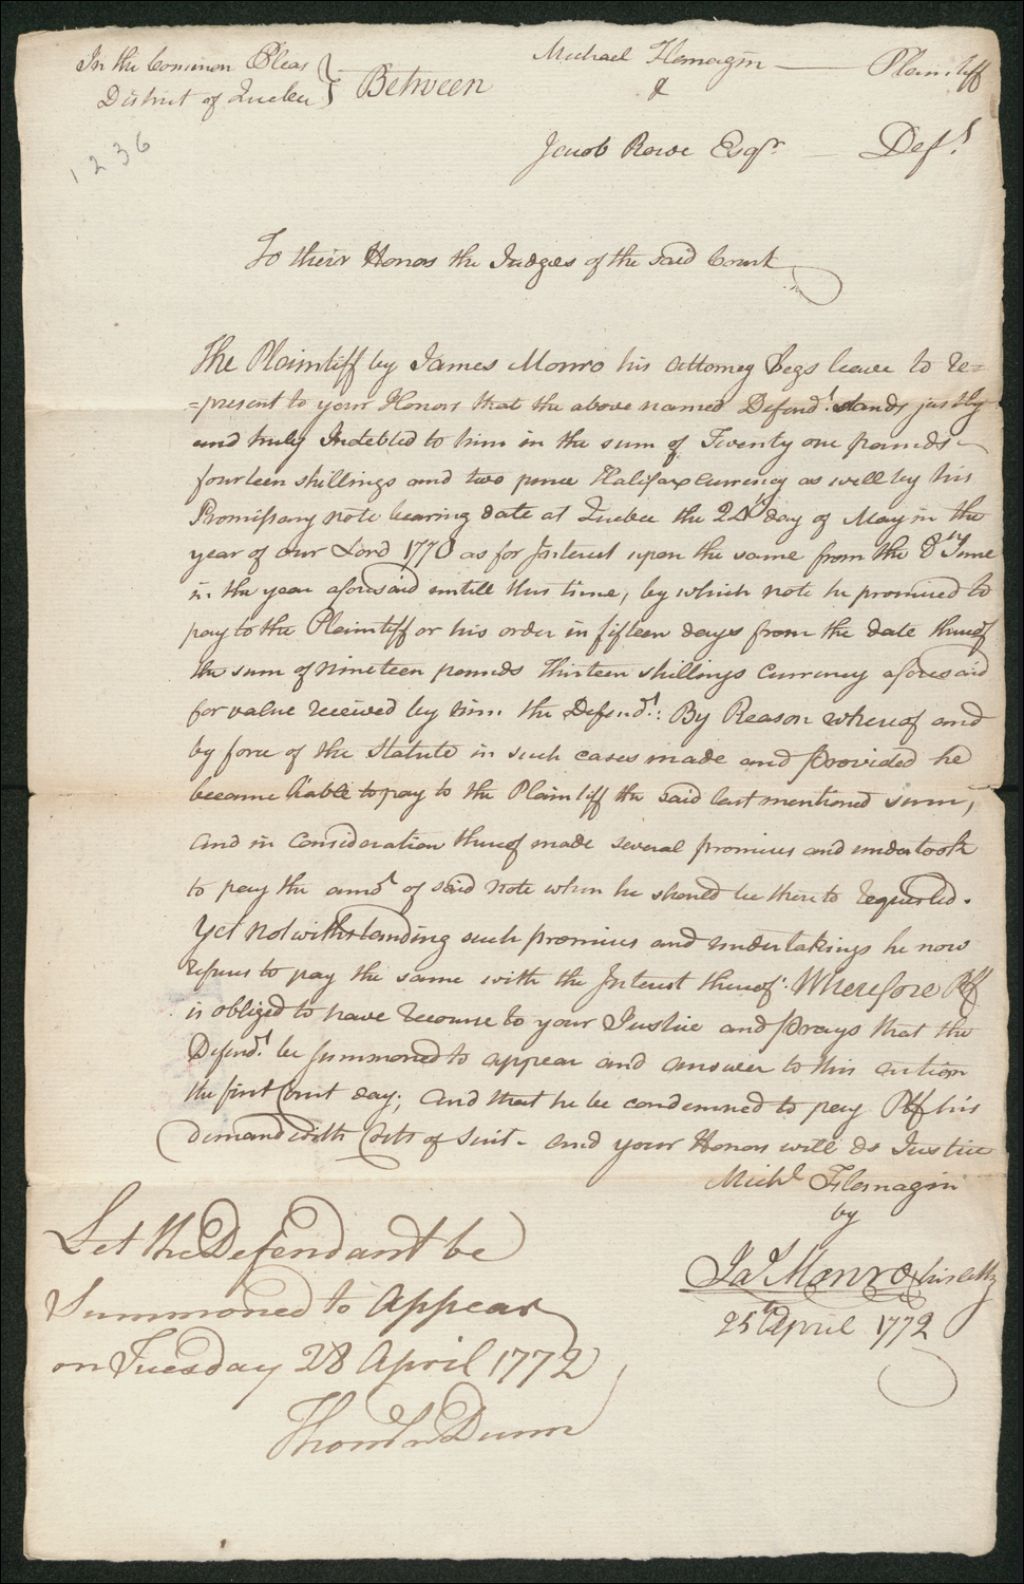 In the Common Pleas
District of Quebec } Between
Michael Flemagin — Plaintiff
&
Jacob Rowe Esqr. — Deft.
1236
To their Honors the Judges of the said Court
The Plaintiff by James Monro his Attorney begs leave to re=
=present to your Honors that the above named Defendt. stands justly
and truly Indebted to him in the sum of Twenty one pounds
fourteen shillings and two pence Halifax Currency as well by his
Promissary note bearing date at Quebec the 24th day of May in the
year of our Lord 1770 as for Interest upon the same from the 8th June
in the year aforesaid untill this time, by which note he promised to
pay to the Plaintiff or his order in fifteen days from the date thereof
the sum of nineteen pounds thirteen shillings Currency aforesaid
for value received by him the Defendt.: By Reason whereof and
by force of the Statute in such cases made and provided he
became liable to pay to the Plaintiff the said last mentioned sum,
and in Consideration thereof made several promises and undertook
to pay the amot. of said note when he should be there to requested.
Yet notwithstanding such promises and undertakings he now
refuses to pay the same with the Interest thereof. Wherefore Ptf
is obliged to have recourse to your Justice and prays that the
Defendt. be summoned to appear and answer to this action
the first Court day; and that he be condemned to pay Ptf his
demand with Costs of Suit - and your Honors will do Justice
Michl. Flemagin
by
Jas. Monro his atty
25th April 1772
Let the Defendant be
Summoned to Appear
on Tuesday 28 April 1772
Thoms. Dunn